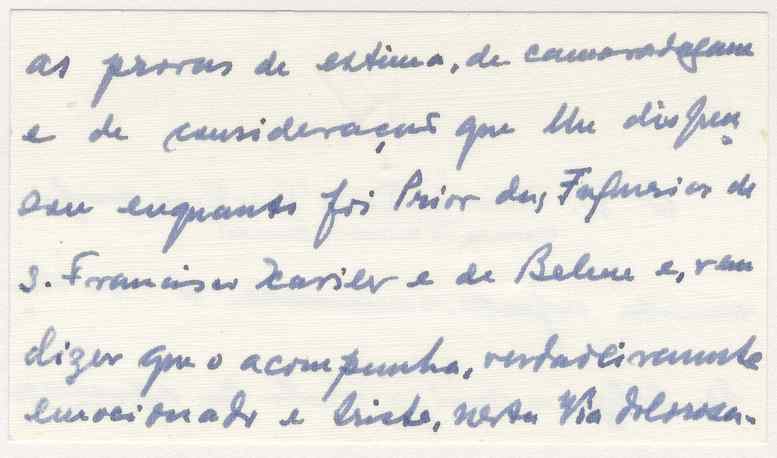 as provas de estima, de camaradagem
e de consideração que lhe dispen
sou enquanto foi Prior das Freguesias de
S. Francisco Xavier e de Belém e, vem
dizer que o acompanha, verdadeiramente
emocionado e triste, nesta Via dolorosa.